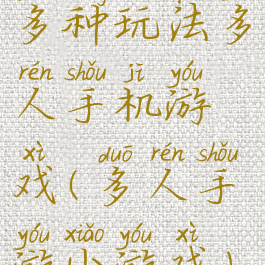 多种玩法多
rén shǒu jī yóu
人手机游
xì duō rén shǒu
戏(多人手
yóu xiǎo yóu xì
游小游戏)